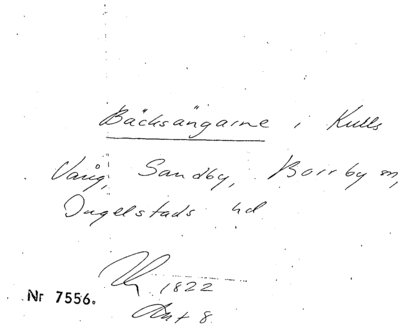 Bäcksängarne i Kulls
Vång, Sandby, Borrby m,
Ingelstads hd
1822
Akt 8.
Nr 7556.